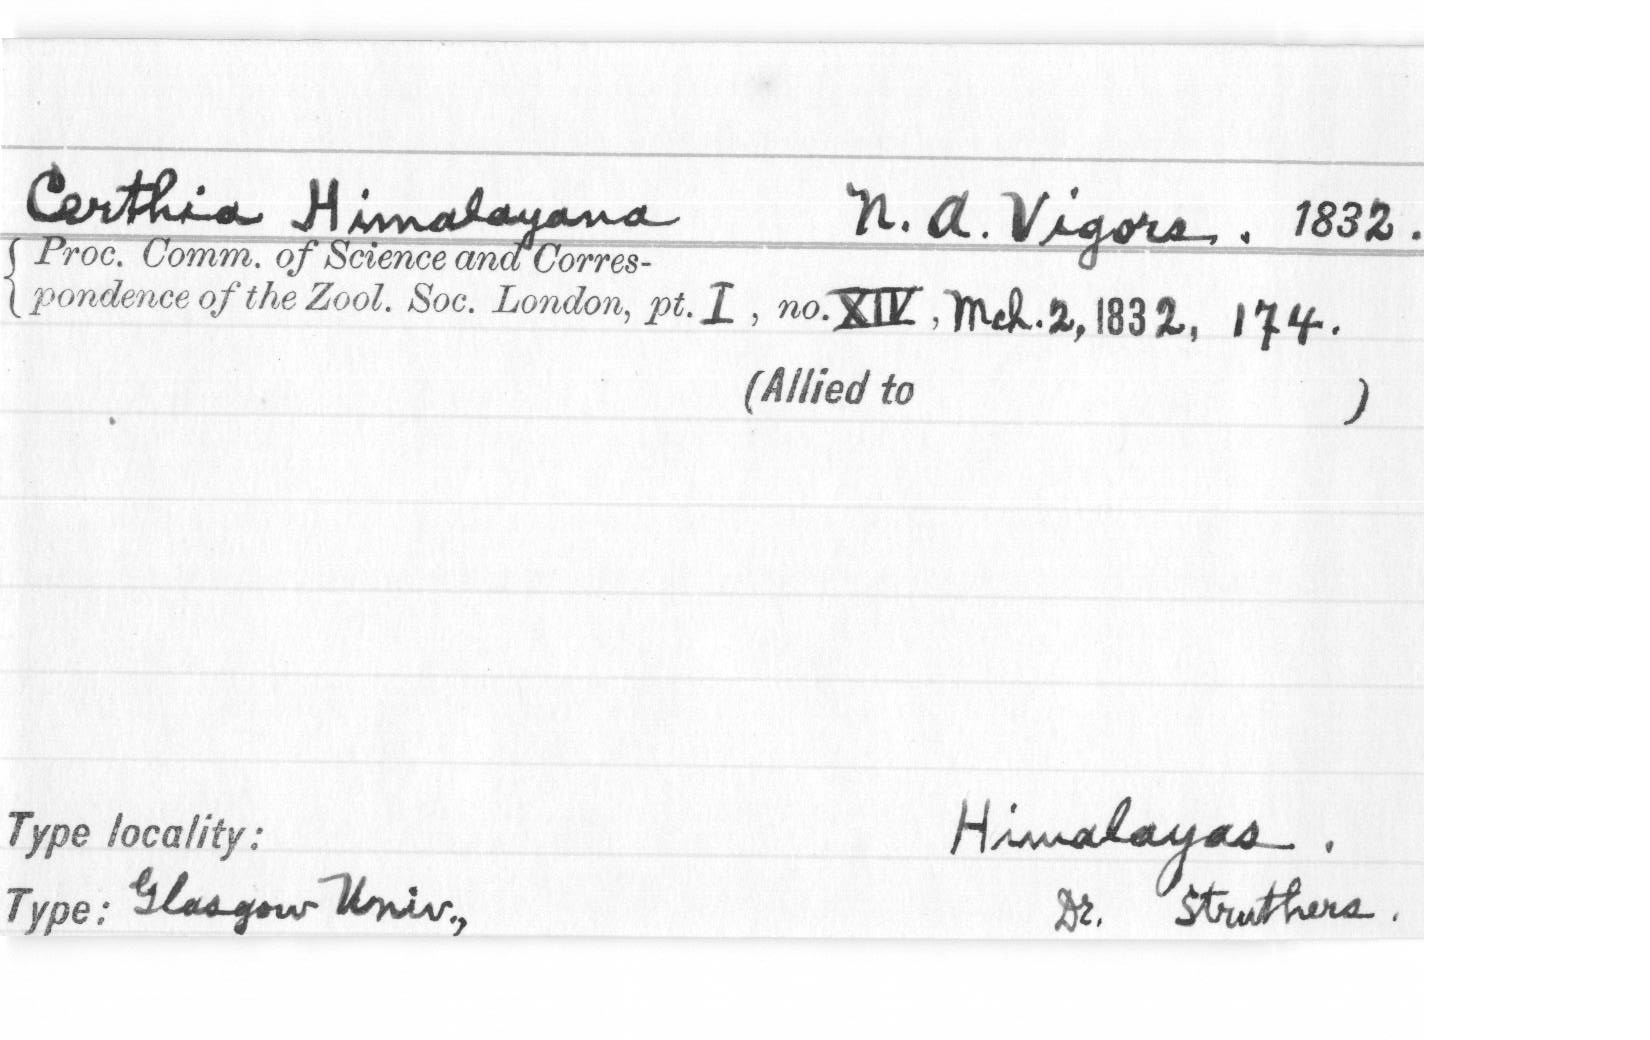 Certhia Himalayana N. A. Vigors. . 1832.
Proc. Comm. of Science and Corres-
pondence of the Zool. Soc. London, pt. I, no. XIV, Mch. 2, 1832, 174.
(Allied to )
Type locality: Himalayas.
Type: Glasgow Univ., Dr. Struthers.